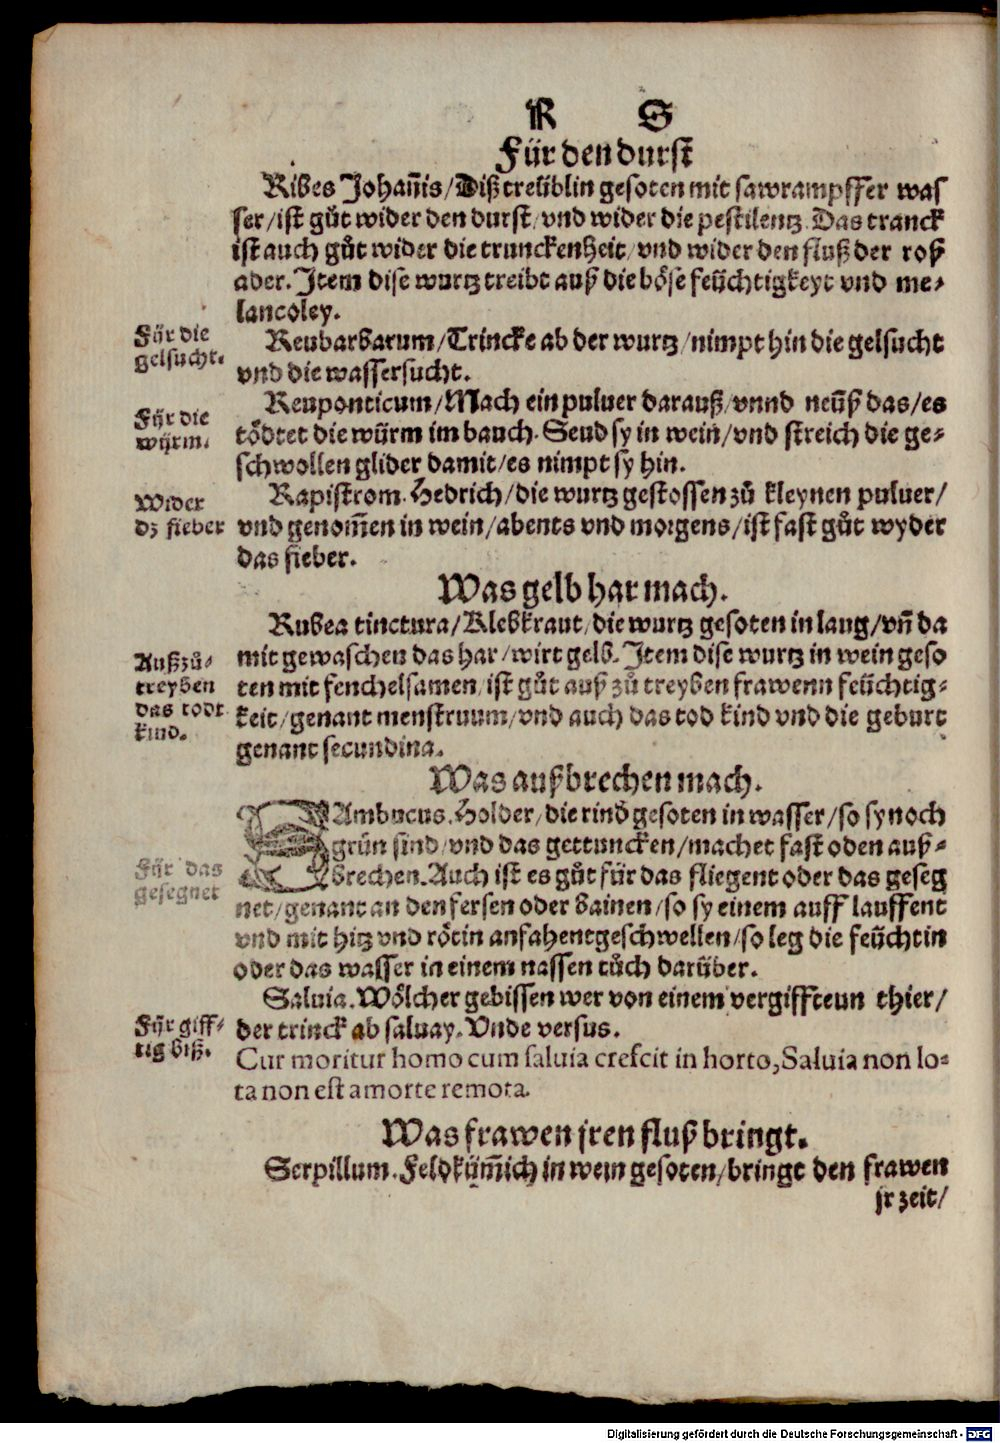 R S
Für den durst
Ribes Johan̄is/Diß treüblin gesoten mit sawrampffer was
ser/ist gůt wider den durst/vnd wider die pestilentz. Das tranck
ist auch gůt wider die trunckenheit/vnd wider den fluß der roß
ader. Item dise wurtz treibt auß die böse feüchtigkeyt vnd me-
lancoley.
Für die
gelsucht.
Reubarbarum/Trincke ab der wurtz/nimpt hin die gelsucht
vnd die wassersucht.
Für die
würm.
Reuponticum/Mach ein puluer darauß/vnnd neüß das/es
tödtet die würm im bauch. Seud sy in wein/vnd streich die ge-
schwollen glider damit/es nimpt sy hin.
Wider
dz fieber
Rapistrom. Hedrich/die wurtz gestossen zů kleynen puluer/
vnd genom̄en in wein/abents vnd morgens/ist fast gůt wyder
das fieber.
Was gelb har mach.
Rubea tinctura/Klebkraut/die wurtz gesoten in laug/vn̄ da
mit gewaschen das har/wirt gelb. Item dise wurtz in wein geso
ten mit fenchelsamen/ist gůt auß zů treyben frawenn feüchtig-
keit/genant menstruum/vnd auch das tod kind vnd die geburt
genant secundina.
Außzů-
treyben
das todt
kind.
Was außbrechen mach.
SAmbucus. Holder/die rind gesoten in wasser/so sy noch
grün sind/vnd das gettuncken/machet fast oden auß-
brechen. Auch ist es gůt für das fliegent oder das geseg
net/genant an den fersen oder bainen/so sy einem auff lauffent
vnd mit hitz vnd rötin anfahent geschwellen/so leg die feüchtin
oder das wasser in einem nassen tůch darüber.
Für das
gesegnet
Saluia. Wölcher gebissen wer von einem vergiffteun thier/
der trinck ab saluay. Vnde versus.
Für giff-
tig biß.
Cur moritur homo cum saluia crescit in horto, Saluia non lo-
ta non est a morte remota.
Was frawen jren fluß bringt.
Serpillum. Feldküm̄ich in wein gesoten/bringt den frawen
jr zeit/
Digitalisierung gefördert durch die Deutsche Forschungsgemeinschaft - DFG